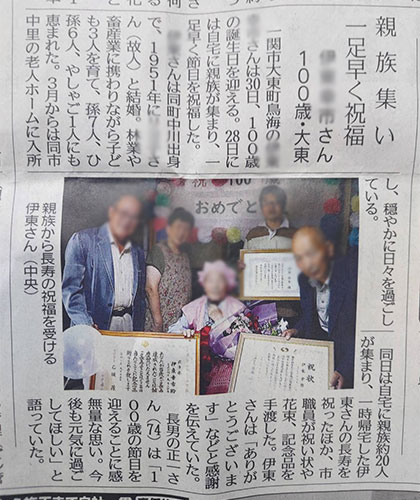 親族集い
一足早く祝福
100歳・大東
さん
一関市大東町鳥海の
さんは30日、100歳
の誕生日を迎える。28日に
は自宅に親族が集まり、一
足早く節目を祝福した。
さんは同町中川出身
で、1951年に
ん(故人)と結婚。林業や
畜産業に携わりながら子ど
も3人を育て、孫7人、ひ
孫6人、やしゃご1人にも
恵まれた。3月からは同市
中里の老人ホームに入所
し、穏やかに日々を過ごし
ている。
同日は自宅に親族約20人
が集まり、一時帰宅した伊
東さんの長寿を
祝ったほか、市
職員が祝い状や
花束、記念品を
手渡した。伊東
さんは「ありが
とうございま
す」などと感謝
を伝えていた。
長男の正一さ
ん(74)は「1
00歳の節目を
迎えることに感
無量な思い。今
後も元気に過ご
してほしい」と
語っていた。
祝 100
おめでと
祝状
親族から長寿の祝福を受ける
伊東さん(中央)